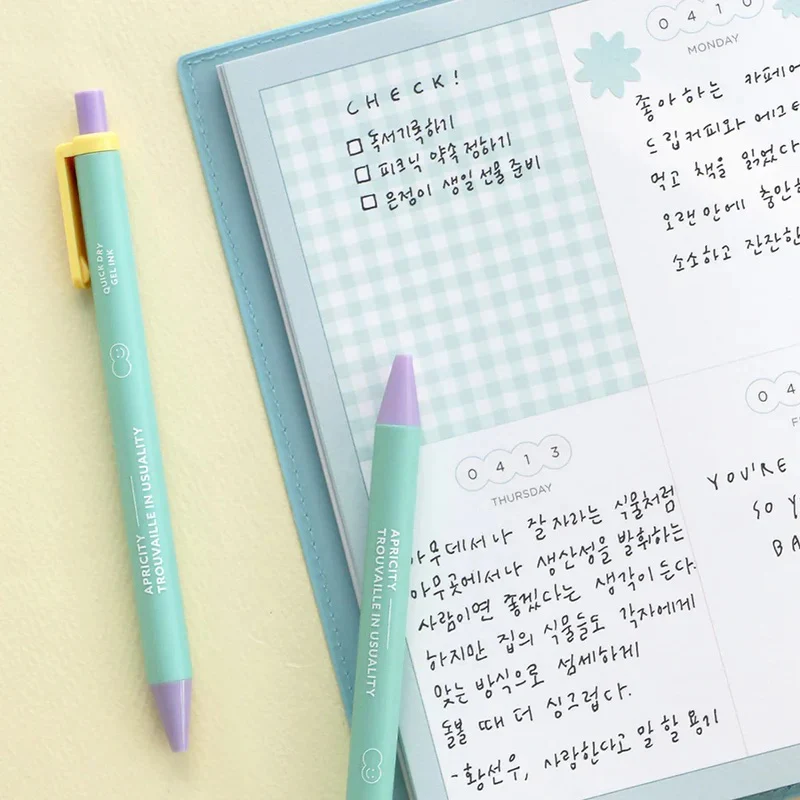 QUICK DRY
GEL INK
APRICITY
TROUVAILLE IN USUALITY
CHECK!
□ 독서기록하기
□ 피크닉 약속 정하기
□ 은정이 생일 선물 준비
0410
MONDAY
좋아하는 카페에
드립커피와 에그
먹고 책을 읽었다
오랜만에 충만
소소하고 잔잔한
0413
THURSDAY
아무데서나 잘 자라는 식물처럼
아무곳에서나 생산성을 발휘하는
사람이면 좋겠다는 생각이 든다.
하지만 집의 식물들도 각자에게
맞는 방식으로 섬세하게
돌볼 때 더 싱그럽다.
-황선우, 사람한다고 말 할 용기
04
YOU'RE
SO
BA
APRICITY
TROUVAILLE IN USUALITY